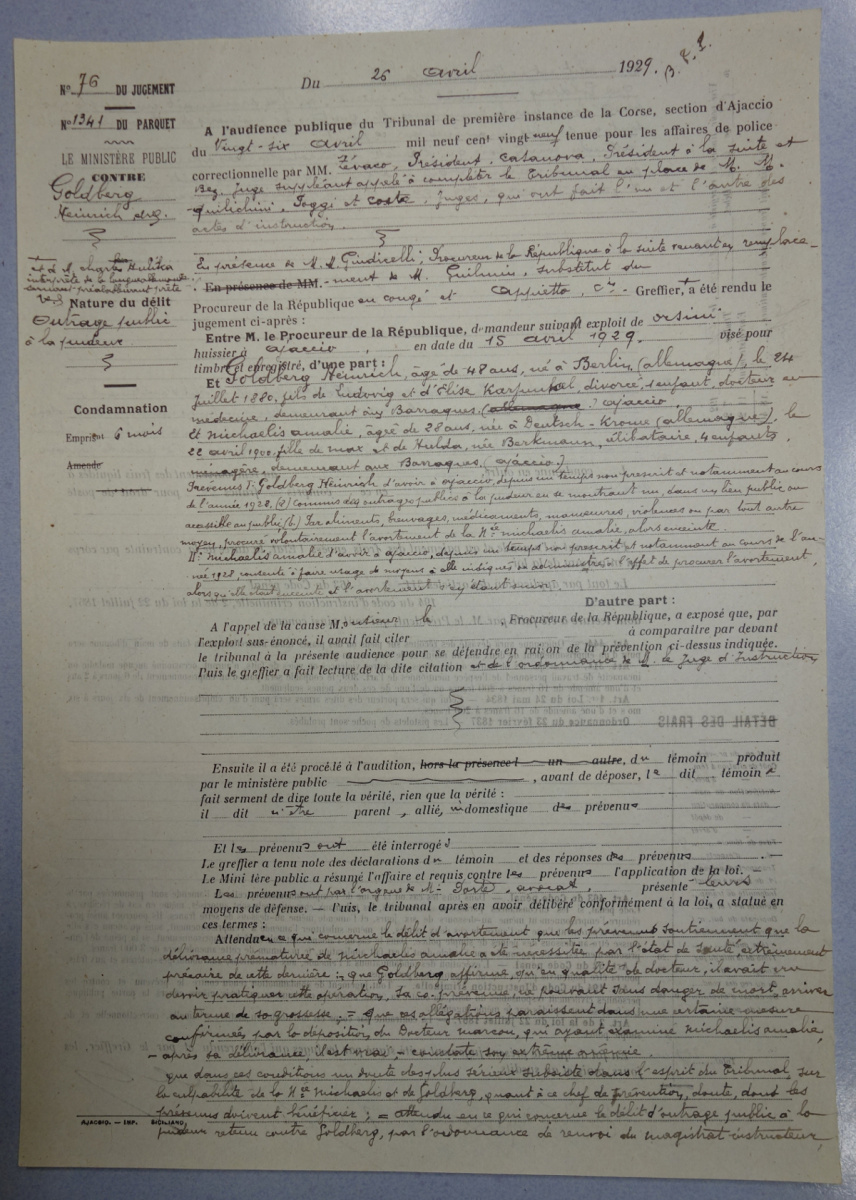 Nº 76 DU JUGEMENT
Nº 1341 DU PARQUET
LE MINISTÈRE PUBLIC
CONTRE
Goldberg
Heinrich
et d M. charles
interprète de la langue allemande
Nature du délit
Outrage public
à la pudeur
Condamnation
Emprist 6 mois
Amende
Du 26 avril 1929.
A l'audience publique du Tribunal de première instance de la Corse, section d'Ajaccio
du Vingt-six avril mil neuf cent vingt neuf tenue pour les affaires de police
correctionnelle par MM. Zévaco, Président, Casanova, Président à la suite et
Beg, juge suppléant appelé à compléter le Tribunal en place de M. M.
Quilichini, Poggi et Coste, juges, qui ont fait l'un et l'autre des
actes d'instruction.
En présence de M. M. Giudicelli, Procureur de la République à la suite venant en remplace-
En présence de MM. -ment de M. Guilmin, substitut du
Procureur de la République en congé et Appietto, cis - Greffier, a été rendu le
jugement ci-après :
Entre M. le Procureur de la République, demandeur suivant exploit de Orsini
huissier à Ajaccio, en date du 15 avril 1929. visé pour
timbre et enregistré, d'une part :
Et Goldberg Heinrich, âgé de 48 ans, né à Berlin (allemagne), le 24
Juillet 1880, fils de Ludovig et d'Elise Karfunkel, divorcé, 1 enfant, docteur en
médecine, demeurant aux Barraques, (allemagne) ajaccio.
Et Michaelis amalie, âgée de 28 ans, née à Deutsch-Krone (allemagne), le
22 avril 1900, fille de max et de Hulda, née Berkmann, célibataire, 4 enfants,
ménagère, demeurant aux Barraques. (ajaccio.)
Prévenus I: Goldberg Heinrich d'avoir à ajaccio, depuis un temps non prescrit et notamment au cours
de l'année 1928, (a) commis des outrages publics à la pudeur en se montrant nu, dans un lieu public ou
accessible au public (b) Par aliments, breuvages, médicaments, manœuvres, violences ou par tout autre
moyen, procuré volontairement l'avortement de la Née michaelis amalie, alors enceinte.
II: Michaelis amalie d'avoir à ajaccio, depuis un temps non prescrit et notamment au cours de l'an-
née 1928 consenti à faire usage de moyens à elle indiqués ou administrés à l'effet de procurer l'avortement,
alors qu'elle était enceinte et l'avortement s'en étant suivi.
D'autre part :
A l'appel de la cause Monsieur le , Procureur de la République, a exposé que, par
l'exploit sus-énoncé, il avait fait citer à comparaître par devant
le tribunal à la présente audience pour se défendre en raison de la prévention ci-dessus indiquée.
Puis le greffier a fait lecture de la dite citation et de l'ordonnance de M. le Juge d'Instruction
Ensuite il a été procédé à l'audition, hors la présence l un autre, du témoin produit
par le ministère public , avant de déposer, le dit témoin a
fait serment de dire toute la vérité, rien que la vérité :
il dit n'être parent, allié, ni domestique des prévenus
Et les prévenus ont été interrogés
Le greffier a tenu note des déclarations du témoin et des réponses des prévenus .—
Le Ministère public a résumé l'affaire et requis contre les prévenus l'application de la loi. —
Les prévenus ont par l'organe de Me , avocat, présenté leurs
moyens de défense. — Puis, le tribunal après en avoir délibéré conformément à la loi, a statué en
ces termes :
Attendu en ce qui concerne le délit d'avortement que les prévenus soutiennent que la
délivrance prématurée de michaelis amalie a été nécessitée par l'état de santé extrêmement
précaire de cette dernière ; que Goldberg affirme, qu'en qualité de docteur, il avait cru
devoir pratiquer cette opération, sa co-prévenue, ne pouvant sans danger de mort, arriver
au terme de sa grossesse. = Que ces allégations paraissent dans une certaine mesure
confirmées par la déposition du Docteur marcou, qui ayant examiné michaelis amalie,
- après sa délivrance, il est vrai, - constate son extrême anémie.
que dans ces conditions un doute des plus sérieux subsiste dans l'esprit du Tribunal sur
la culpabilité de la Née michaelis et de Goldberg, quant à ce chef de prévention, doute, dont les
prévenus doivent bénéficier ; = attendu en ce qui concerne le délit d'outrage public à la
pudeur retenu contre Goldberg, par l'ordonnance de renvoi du magistrat instructeur,
AJACCIO. — IMP. SICILIANO,